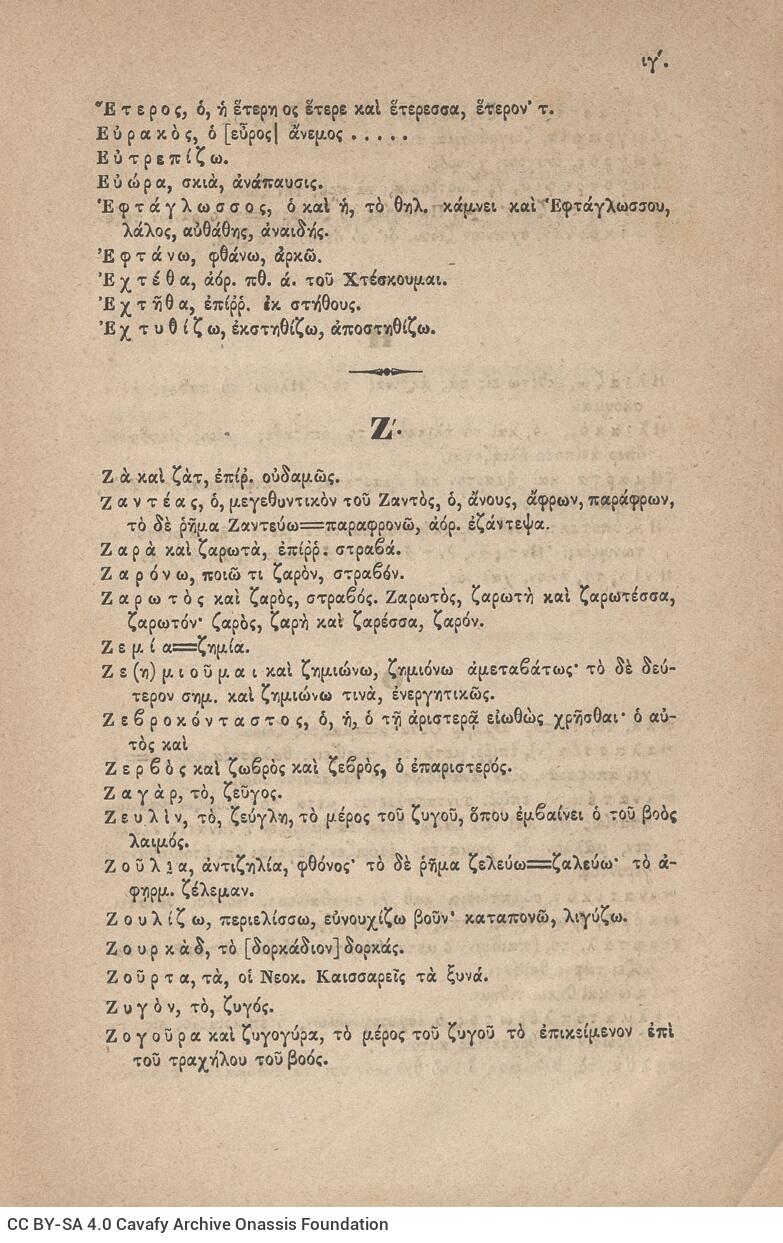 ιγ'.
Ἕτερος, ὁ, ἡ ἕτερη ος ἕτερε καὶ ἕτερεσσα, ἕτερον· τ.
Εὐρακὸς, ὁ [εὖρος] ἄνεμος . . . . .
Εὐτρεπίζω.
Εὐώρα, σκιὰ, ἀνάπαυσις.
Ἑφτάγλωσσος, ὁ καὶ ἡ, τὸ θηλ. κάμνει καὶ Ἑφτάγλωσσου,
λάλος, αὐθάθης, ἀναιδής.
Ἐφτάνω, φθάνω, ἀρκῶ.
Ἐχτέθα, ἀόρ. πθ. ά. τοῦ Χτέσκουμαι.
Ἐχτῆθα, ἐπίῤῥ. ἐκ στήθους.
Ἐχτυθίζω, ἐκστηθίζω, ἀποστηθίζω.
Ζ'.
Ζὰ καὶ ζὰτ, ἐπίῤ. οὐδαμῶς.
Ζαντέας, ὁ, μεγεθυντικὸν τοῦ Ζαντὸς, ὁ, ἄνους, ἄφρων, παράφρων,
τὸ δὲ ῥῆμα Ζαντεύω=παραφρονῶ, ἀόρ. ἐζάντεψα.
Ζαρὰ καὶ ζαρωτὰ, ἐπίῤῥ. στραβά.
Ζαρόνω, ποιῶ τι ζαρὸν, στραβόν.
Ζαρωτὸς καὶ ζαρὸς, στραβός. Ζαρωτὸς, ζαρωτὴ καὶ ζαρωτέσσα,
ζαρωτόν· ζαρὸς, ζαρὴ καὶ ζαρέσσα, ζαρόν.
Ζεμία=ζημία.
Ζε(η)μιοῦμαι καὶ ζημιώνω, ζημιόνω ἀμεταβάτως· τὸ δὲ δεύ-
τερον σημ. καὶ ζημιώνω τινὰ, ἐνεργητικῶς.
Ζεβροκόνταστος, ὁ, ἡ, ὁ τῇ ἀριστερᾷ εἰωθὼς χρῆσθαι· ὁ αὐ-
τὸς καὶ
Ζερβὸς καὶ ζωβρὸς καὶ ζεβρὸς, ὁ ἐπαριστερός.
Ζαγὰρ, τὸ, ζεῦγος.
Ζευλὶν, τὸ, ζεύγλη, τὸ μέρος τοῦ ζυγοῦ, ὅπου ἐμβαίνει ὁ τοῦ βοὸς
λαιμός.
Ζοῦλια, ἀντιζηλία, φθόνος· τὸ δὲ ῥῆμα ζελεύω=ζαλεύω· τὸ ἀ-
φηρμ. ζέλεμαν.
Ζουλίζω, περιελίσσω, εὐνουχίζω βοῦν· καταπονῶ, λιγύζω.
Ζουρκὰδ, τὸ [δορκάδιον] δορκάς.
Ζοῦρτα, τὰ, οἱ Νεοκ. Καισσαρεῖς τὰ ξυνά.
Ζυγὸν, τὸ, ζυγός.
Ζογοῦρα καὶ ζυγογύρα, τὸ μέρος τοῦ ζυγοῦ τὸ ἐπικείμενον ἐπὶ
τοῦ τραχήλου τοῦ βοός.
CC BY-SA 4.0 Cavafy Archive Onassis Foundation